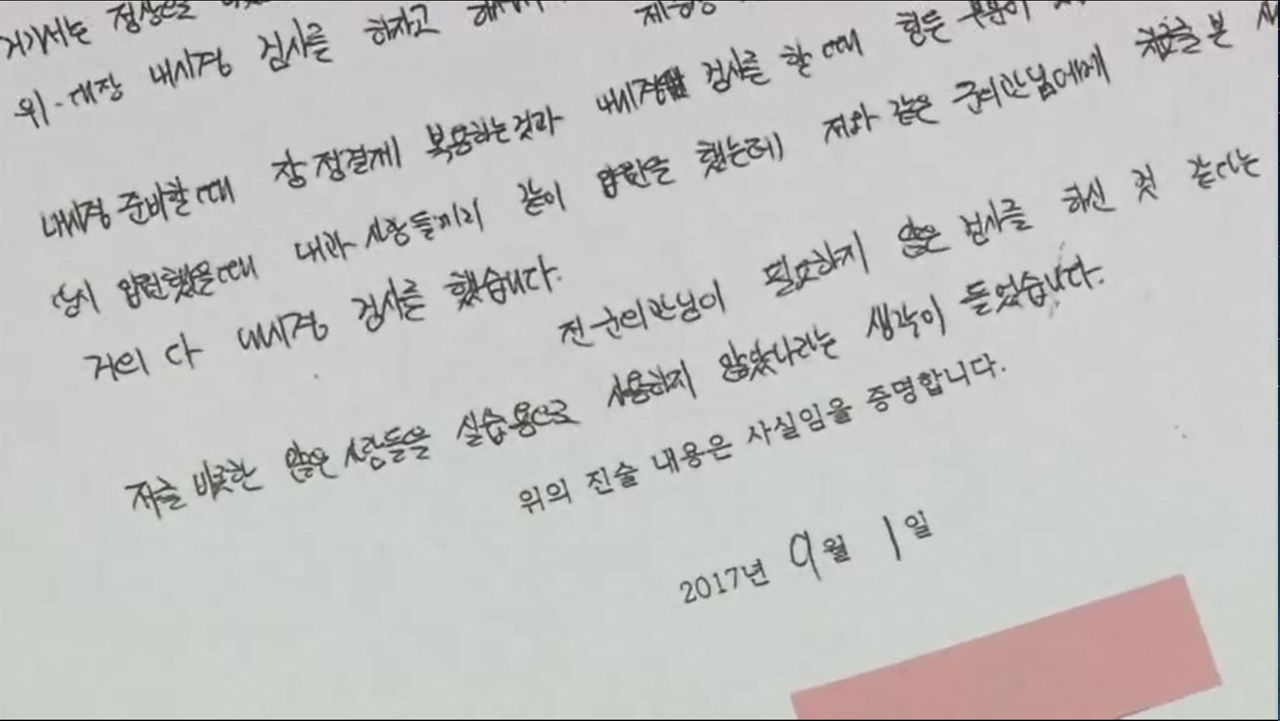 거기서는 정상으로
위·대장 내시경 검사를 하자고
내시경 준비할때 장 정결제 복용하는것과 내시경 검사를 할때 힘든 부분이
당시 입원했을때 내과 사람들끼리 같이 입원을 했는데 저와 같은 군의관님에게 진료를 본
거의 다 내시경 검사를 했습니다. 전 군의관님이 필요하지 않은 검사를 하신 것 같다는
저를 비롯한 많은 사람들을 실습용으로 사용하지 않았나라는 생각이 들었습니다.
위의 진술 내용은 사실임을 증명합니다.
2017년 9월 1일